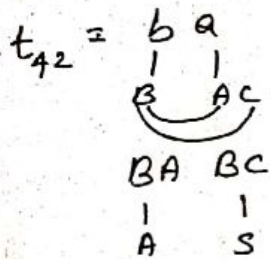 t42 = b a
B A C
BA BC
A S